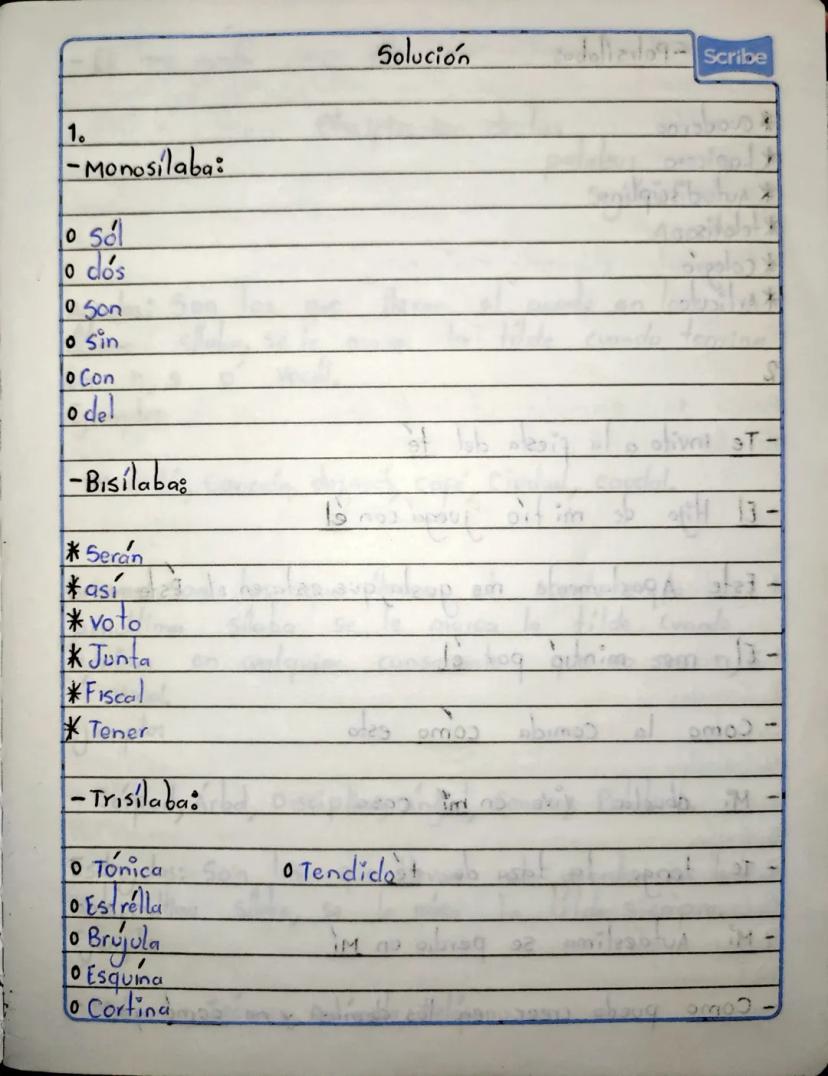 Solución
Scribe
1.
-Monosílaba:
o Sól
o dós
o son
o sin
o Con
o del
-Bisílaba:
* Serán
* así
* voto
* Junta
* Fiscal
* Tener
-Trisílaba:
o Tónica o Tendido
o Estrélla
o Brújula
o Esquína
o Cortina